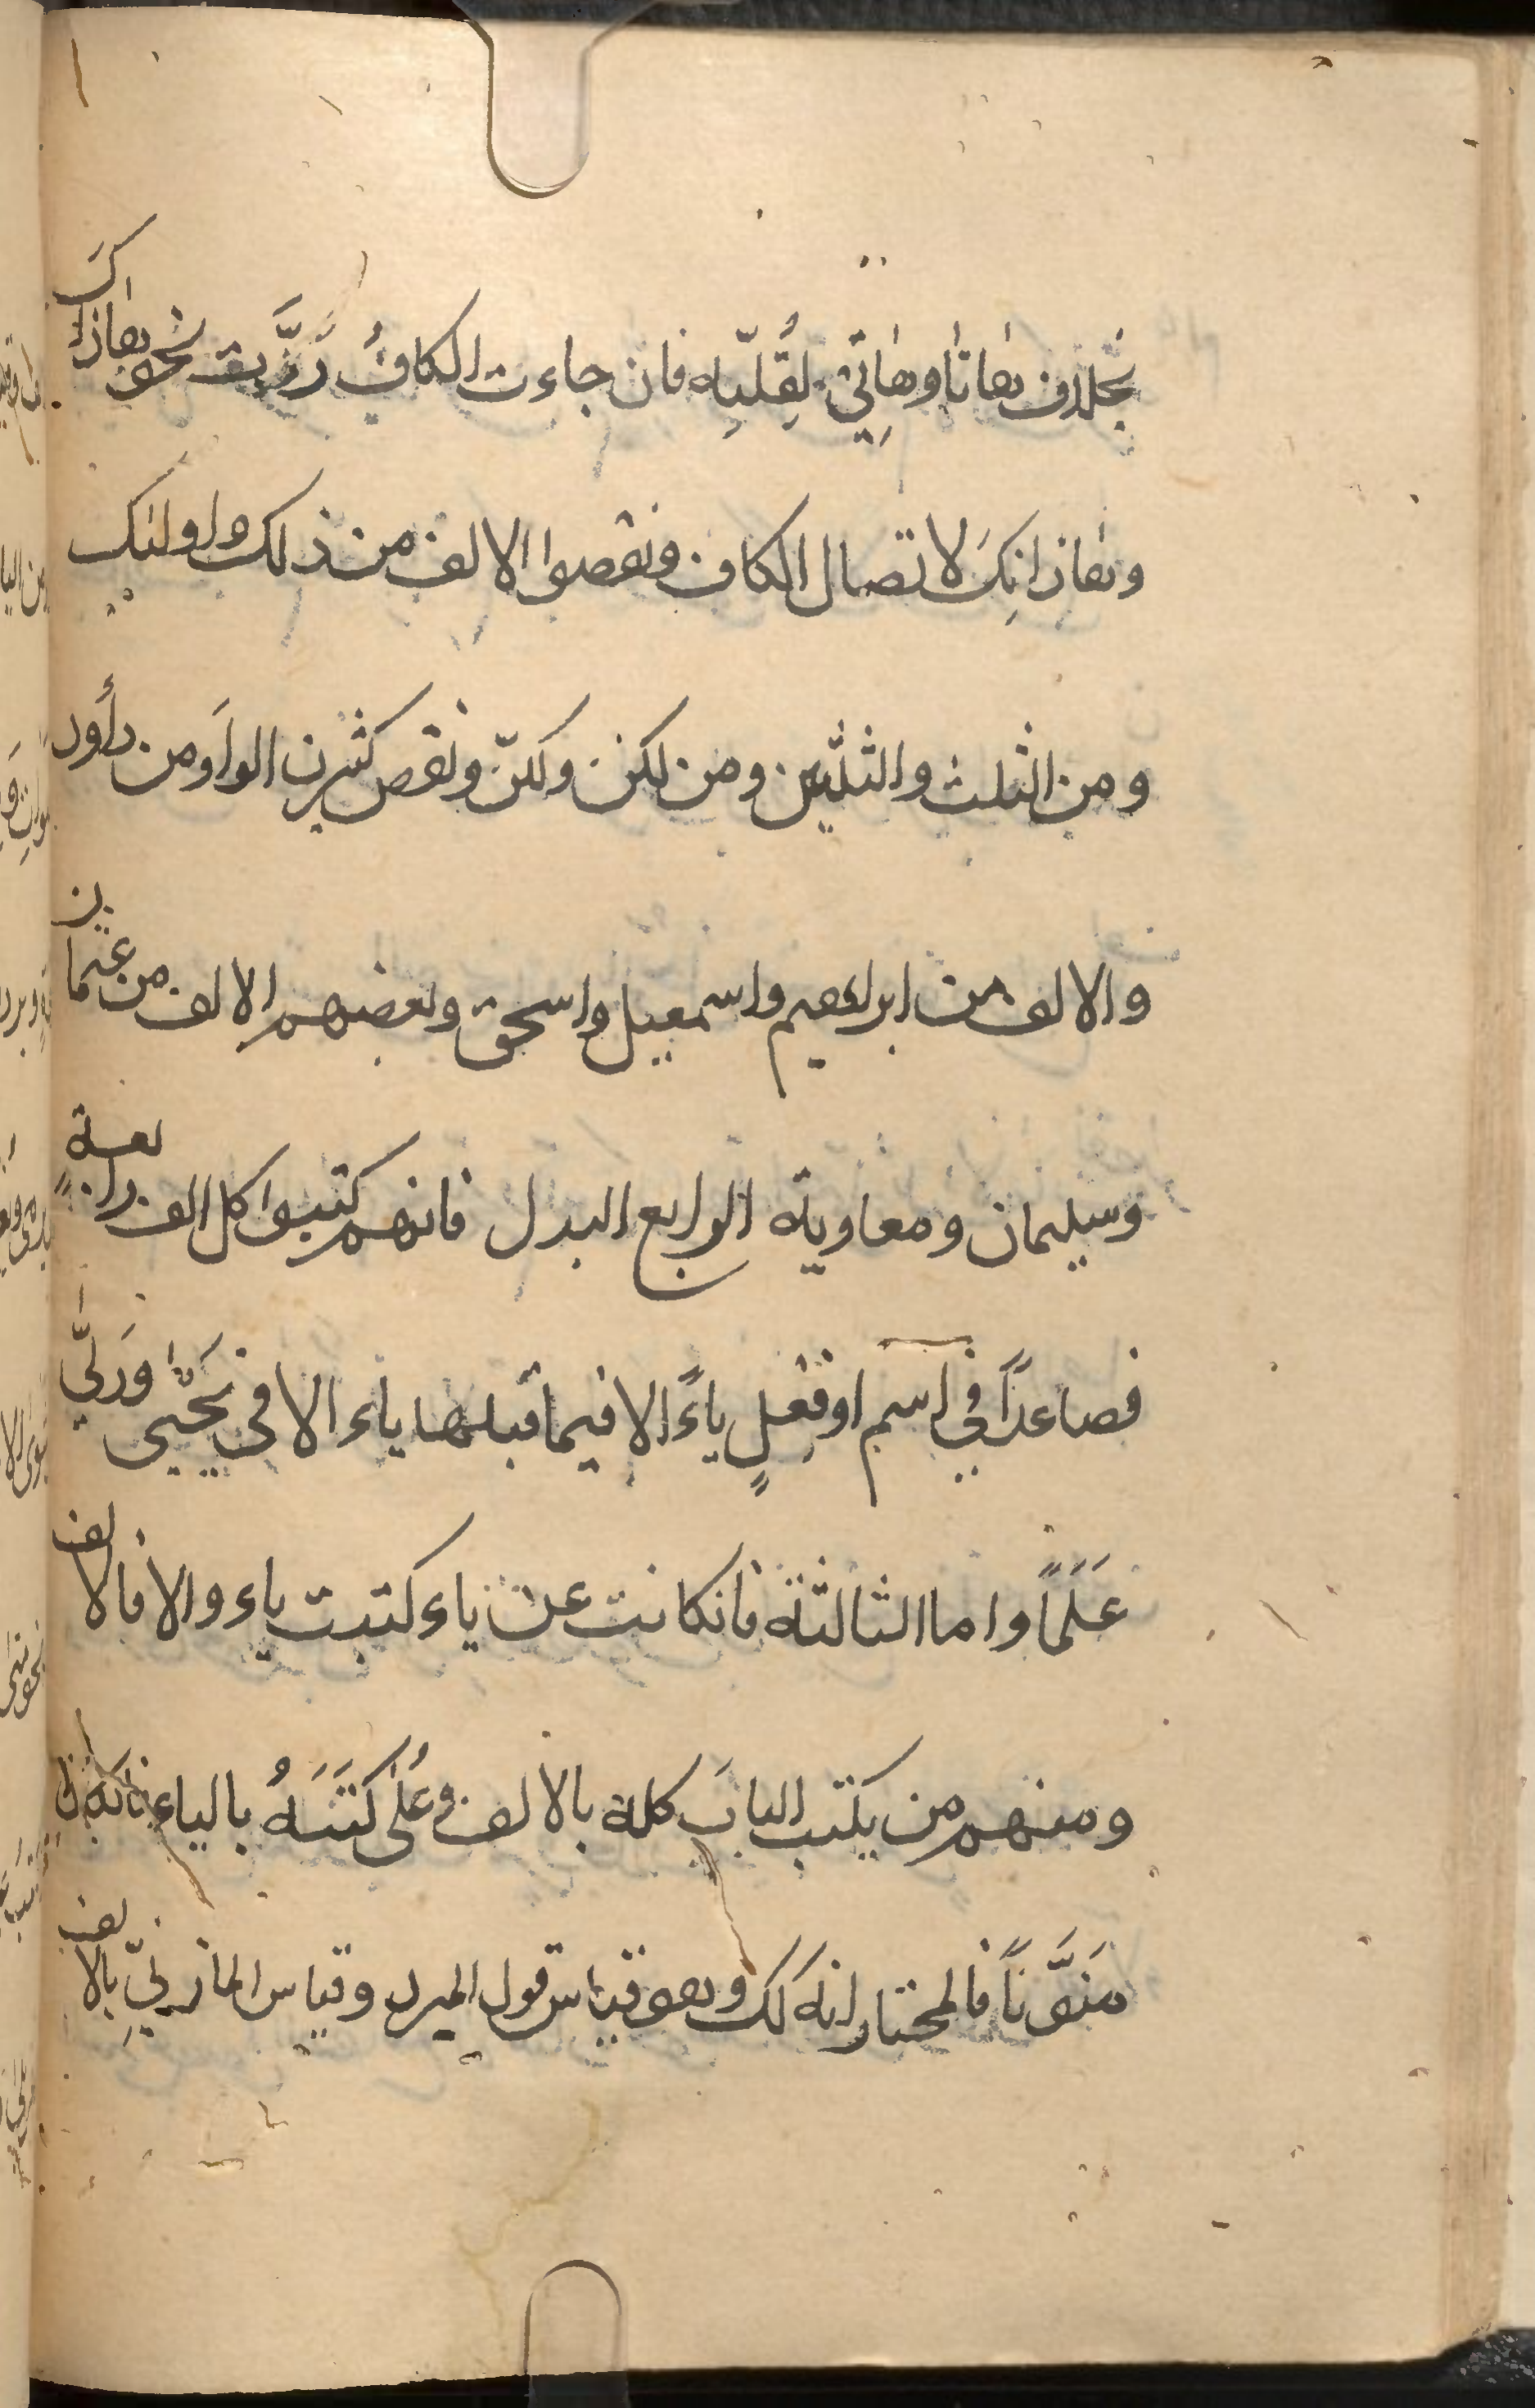 بخلاف هاتا وهاتي لقلّته فان جاءت الكافُ رُدَّت نحو هاذاكَ
وهاذانِكَ لاتصال الكاف ونقصوا الالف من ذلك واولئك
ومن الثلث والثلثين ومن لكن ولكنّ ونقص كثيرن الواوَ من داود
والالف من ابراهيم واسمعيل واسحق وبعضهم الالف من عثمان
وسليمان ومعاوية الرابع البدل فانهم كتبوا كل الف رابعةٍ
فصاعداً في اسم او فعلٍ ياءً الا فيما قبلها ياء الا في يَحْيى ورَيّى
عَلَماً واما الثالثة فانكانت عن ياء كتبت ياء والا فالالف
ومنهم من يكتب البابَ كله بالالف وعلى كَتْبَهُ بالياء فانكان
منوَّناً فالمختار انه كك وهو قياس قول المبرد وقياس المازنيّ بالالف